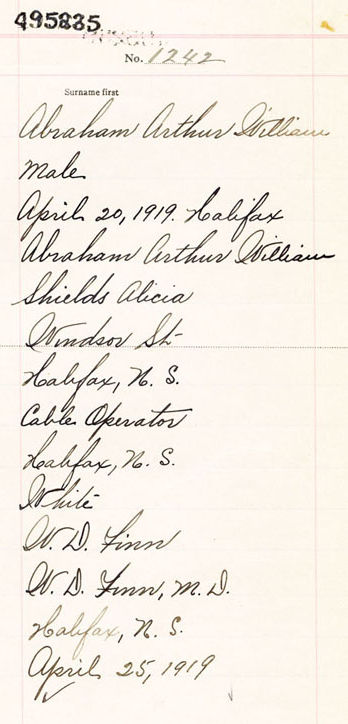 495835
No. 1242
Surname first
Abraham Arthur William
Male
April 20, 1919. Halifax
Abraham Arthur William
Shields Alicia
Windsor St
Halifax, N. S.
Cable Operator
Halifax, N. S.
White
W. D. Finn
W. D. Finn, M. D.
Halifax, N. S.
April 25, 1919